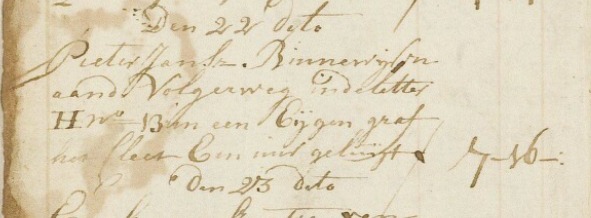 Den 22 dito
Pieter Jansz. Binnewijsen
aand Volgerweg indeletter
H no 13 in een Eijgen graf
het Cleet Een uur geluijt 7-16-:
den 23 dito